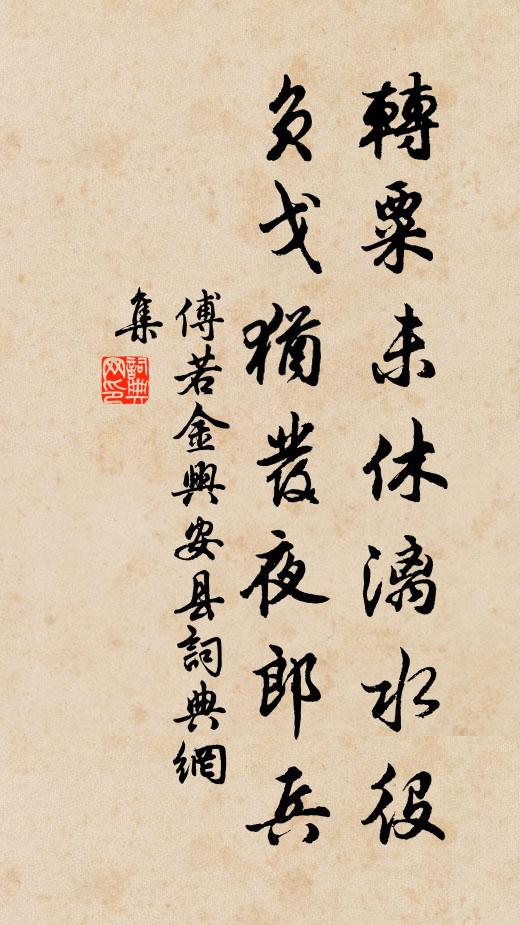 轉粟未休漓水役
負戈猶發夜郎兵
傅若金興安县詞典網
集
詞典网印